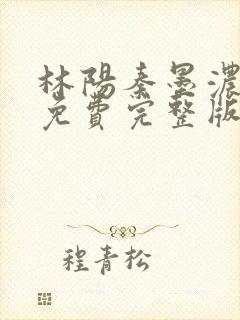 林陽秦墨濃
免費完整版
程青松